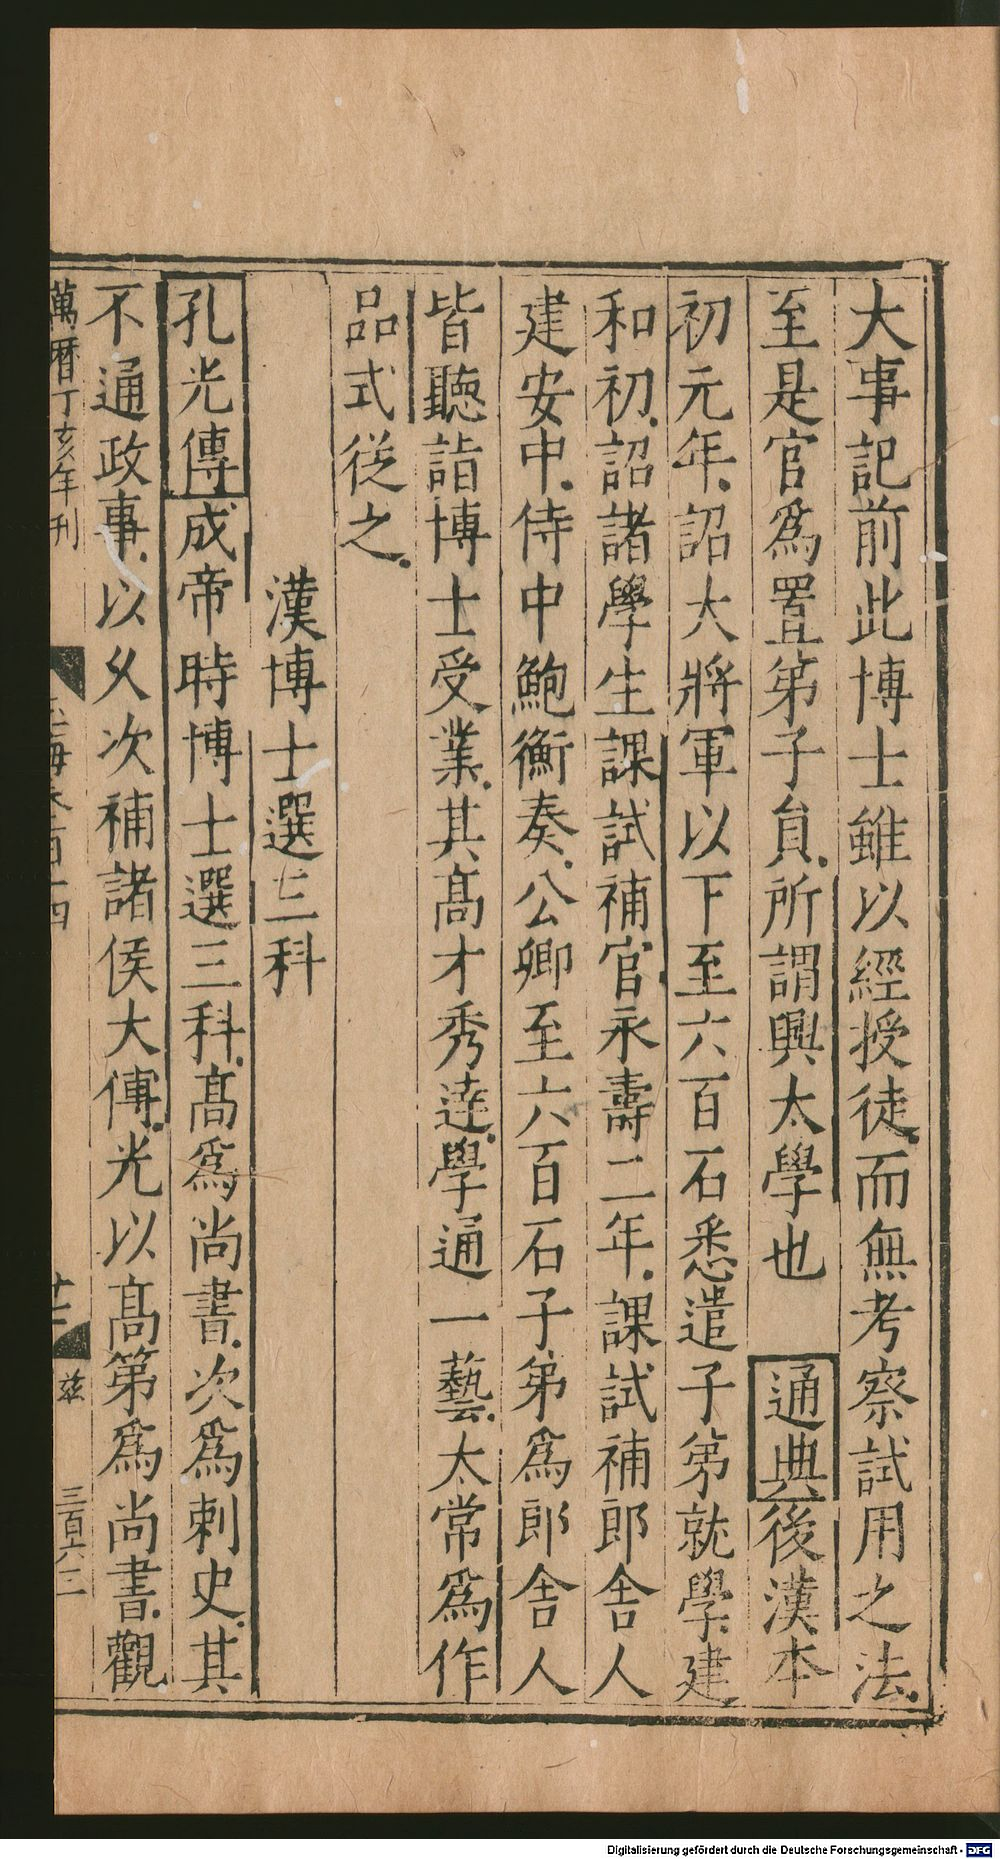 大事記前此博士雖以經授徒而無考察試用之法
至是官爲置第子貟所謂興太學也 通典後漢本
初元年詔大將軍以下至六百石悉遣子弟就學建
和初詔諸學生課試補官永壽二年課試補郎舍人
建安中侍中鮑衡奏公卿至六百石子弟爲郎舍人
皆聽詣博士受業其高才秀達學通一藝太常爲作
品式從之
漢博士選三科
孔光傳成帝時博士選三科高爲尚書次爲刺史其
不通政事以久次補諸侯大傅光以高第爲尚書觀
萬曆丁亥年刊
玉海卷百十四
兹
三百六三
Digitalisierung gefördert durch die Deutsche Forschungsgemeinschaft - DFG